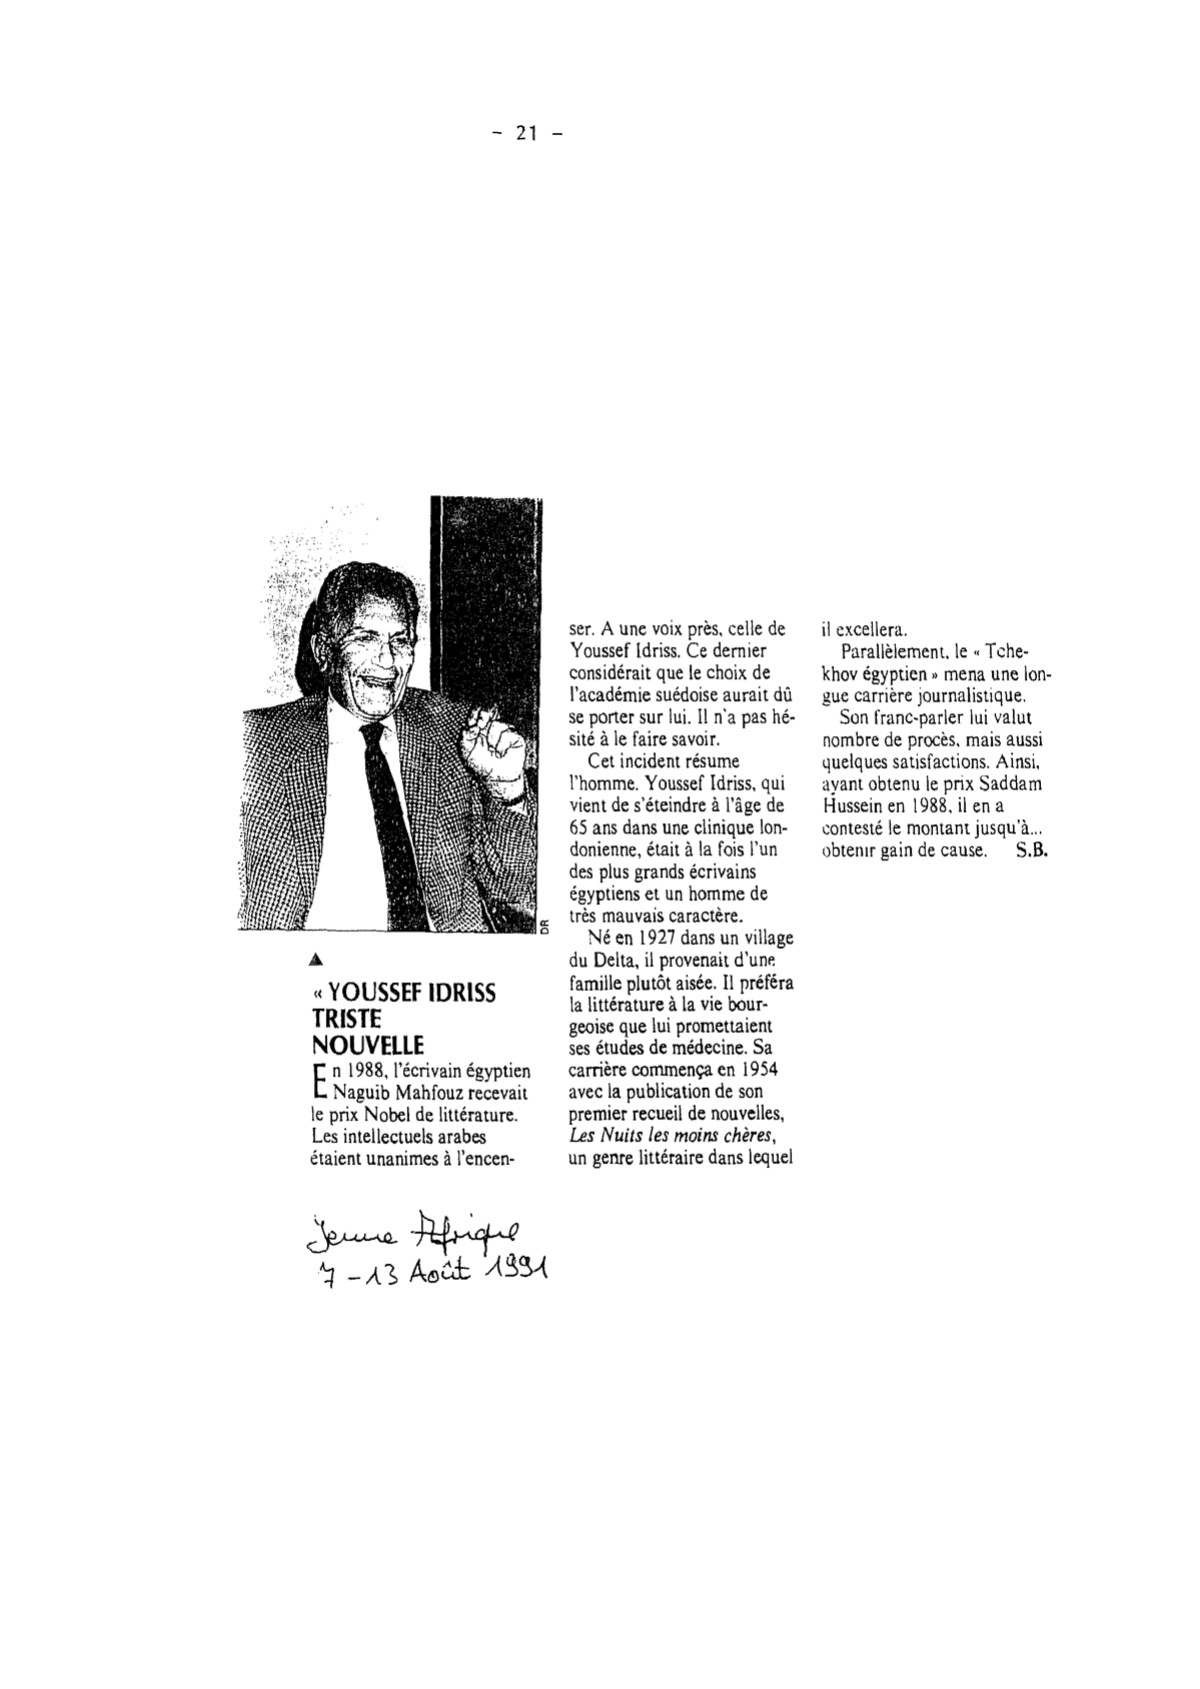 - 21 -
DR
« YOUSSEF IDRISS
TRISTE
NOUVELLE
En 1988, l'écrivain égyptien
Naguib Mahfouz recevait
le prix Nobel de littérature.
Les intellectuels arabes
étaient unanimes à l'encen-
ser. A une voix près, celle de
Youssef Idriss. Ce dernier
considérait que le choix de
l'académie suédoise aurait dû
se porter sur lui. Il n'a pas hé-
sité à le faire savoir.
Cet incident résume
l'homme. Youssef Idriss, qui
vient de s'éteindre à l'âge de
65 ans dans une clinique lon-
donienne, était à la fois l'un
des plus grands écrivains
égyptiens et un homme de
très mauvais caractère.
Né en 1927 dans un village
du Delta, il provenait d'une
famille plutôt aisée. Il préféra
la littérature à la vie bour-
geoise que lui promettaient
ses études de médecine. Sa
carrière commença en 1954
avec la publication de son
premier recueil de nouvelles,
Les Nuits les moins chères,
un genre littéraire dans lequel
il excellera.
Parallèlement, le « Tche-
khov égyptien » mena une lon-
gue carrière journalistique.
Son franc-parler lui valut
nombre de procès, mais aussi
quelques satisfactions. Ainsi,
ayant obtenu le prix Saddam
Hussein en 1988, il en a
contesté le montant jusqu'à...
obtenir gain de cause. S.B.
Jeune Afrique
7-13 Août 1991